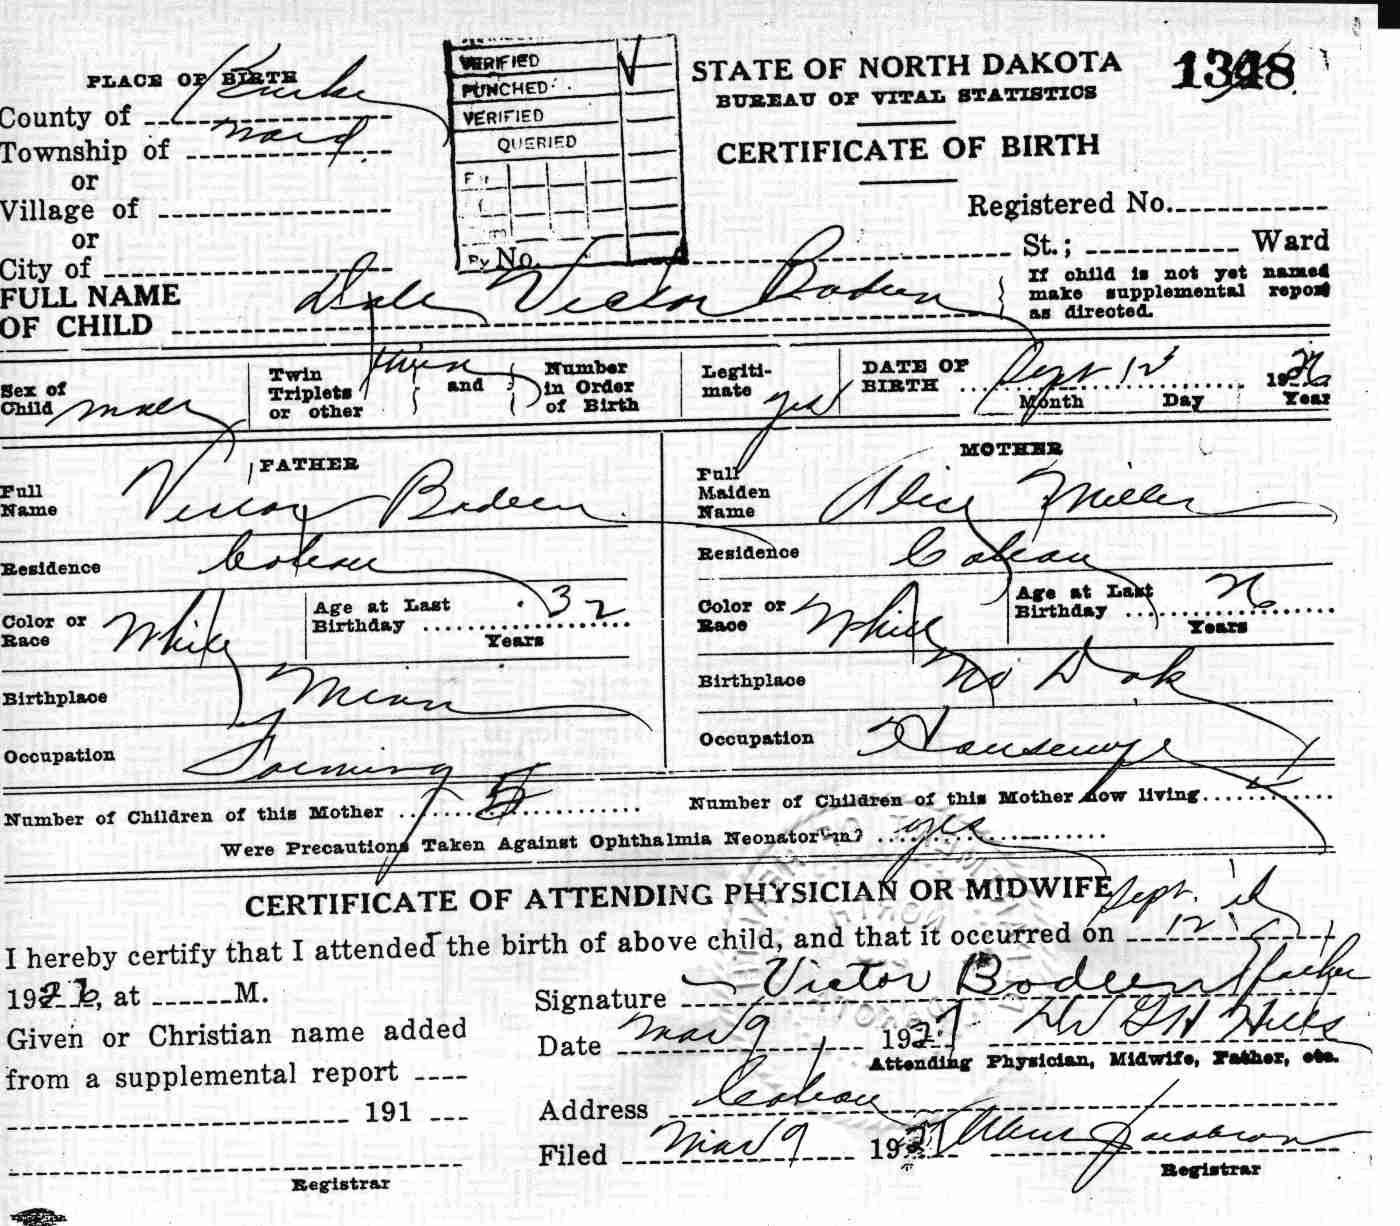 VERIFIED
PUNCHED
VERIFIED
QUERIED
By No.
PLACE OF BIRTH
County of Burke
Township of Ward
or
Village of
or
City of
STATE OF NORTH DAKOTA
BUREAU OF VITAL STATISTICS
CERTIFICATE OF BIRTH
1348
Registered No.
St.; Ward
If child is not yet named
make supplemental report
as directed.
FULL NAME
OF CHILD Dale Victor Bodeen
Sex of
Child male
Twin
Triplets
or other twin
and
Number
in Order
of Birth
Legiti-
mate yes
DATE OF
BIRTH Sept 12 1926
Month Day Year
FATHER
Full
Name Victor Bodeen
Residence Coteau
Color or
Race White
Age at Last
Birthday 32
Years
Birthplace Minn
Occupation Farming
MOTHER
Full
Maiden
Name Alice Miller
Residence Coteau
Color or
Race White
Age at Last
Birthday 26
Years
Birthplace No Dak
Occupation Housewife
Number of Children of this Mother 5
Number of Children of this Mother now living
Were Precautions Taken Against Ophthalmia Neonatorum? yes
CERTIFICATE OF ATTENDING PHYSICIAN OR MIDWIFE
I hereby certify that I attended the birth of above child, and that it occurred on Sept. 12
1926, at M.
Signature Victor Bodeen father
Given or Christian name added
from a supplemental report
191
Registrar
Date Mar 9 1927 Dr G H Hicks
Attending Physician, Midwife, Father, etc.
Address Coteau
Filed Mar 9 1927 Jacobson
Registrar